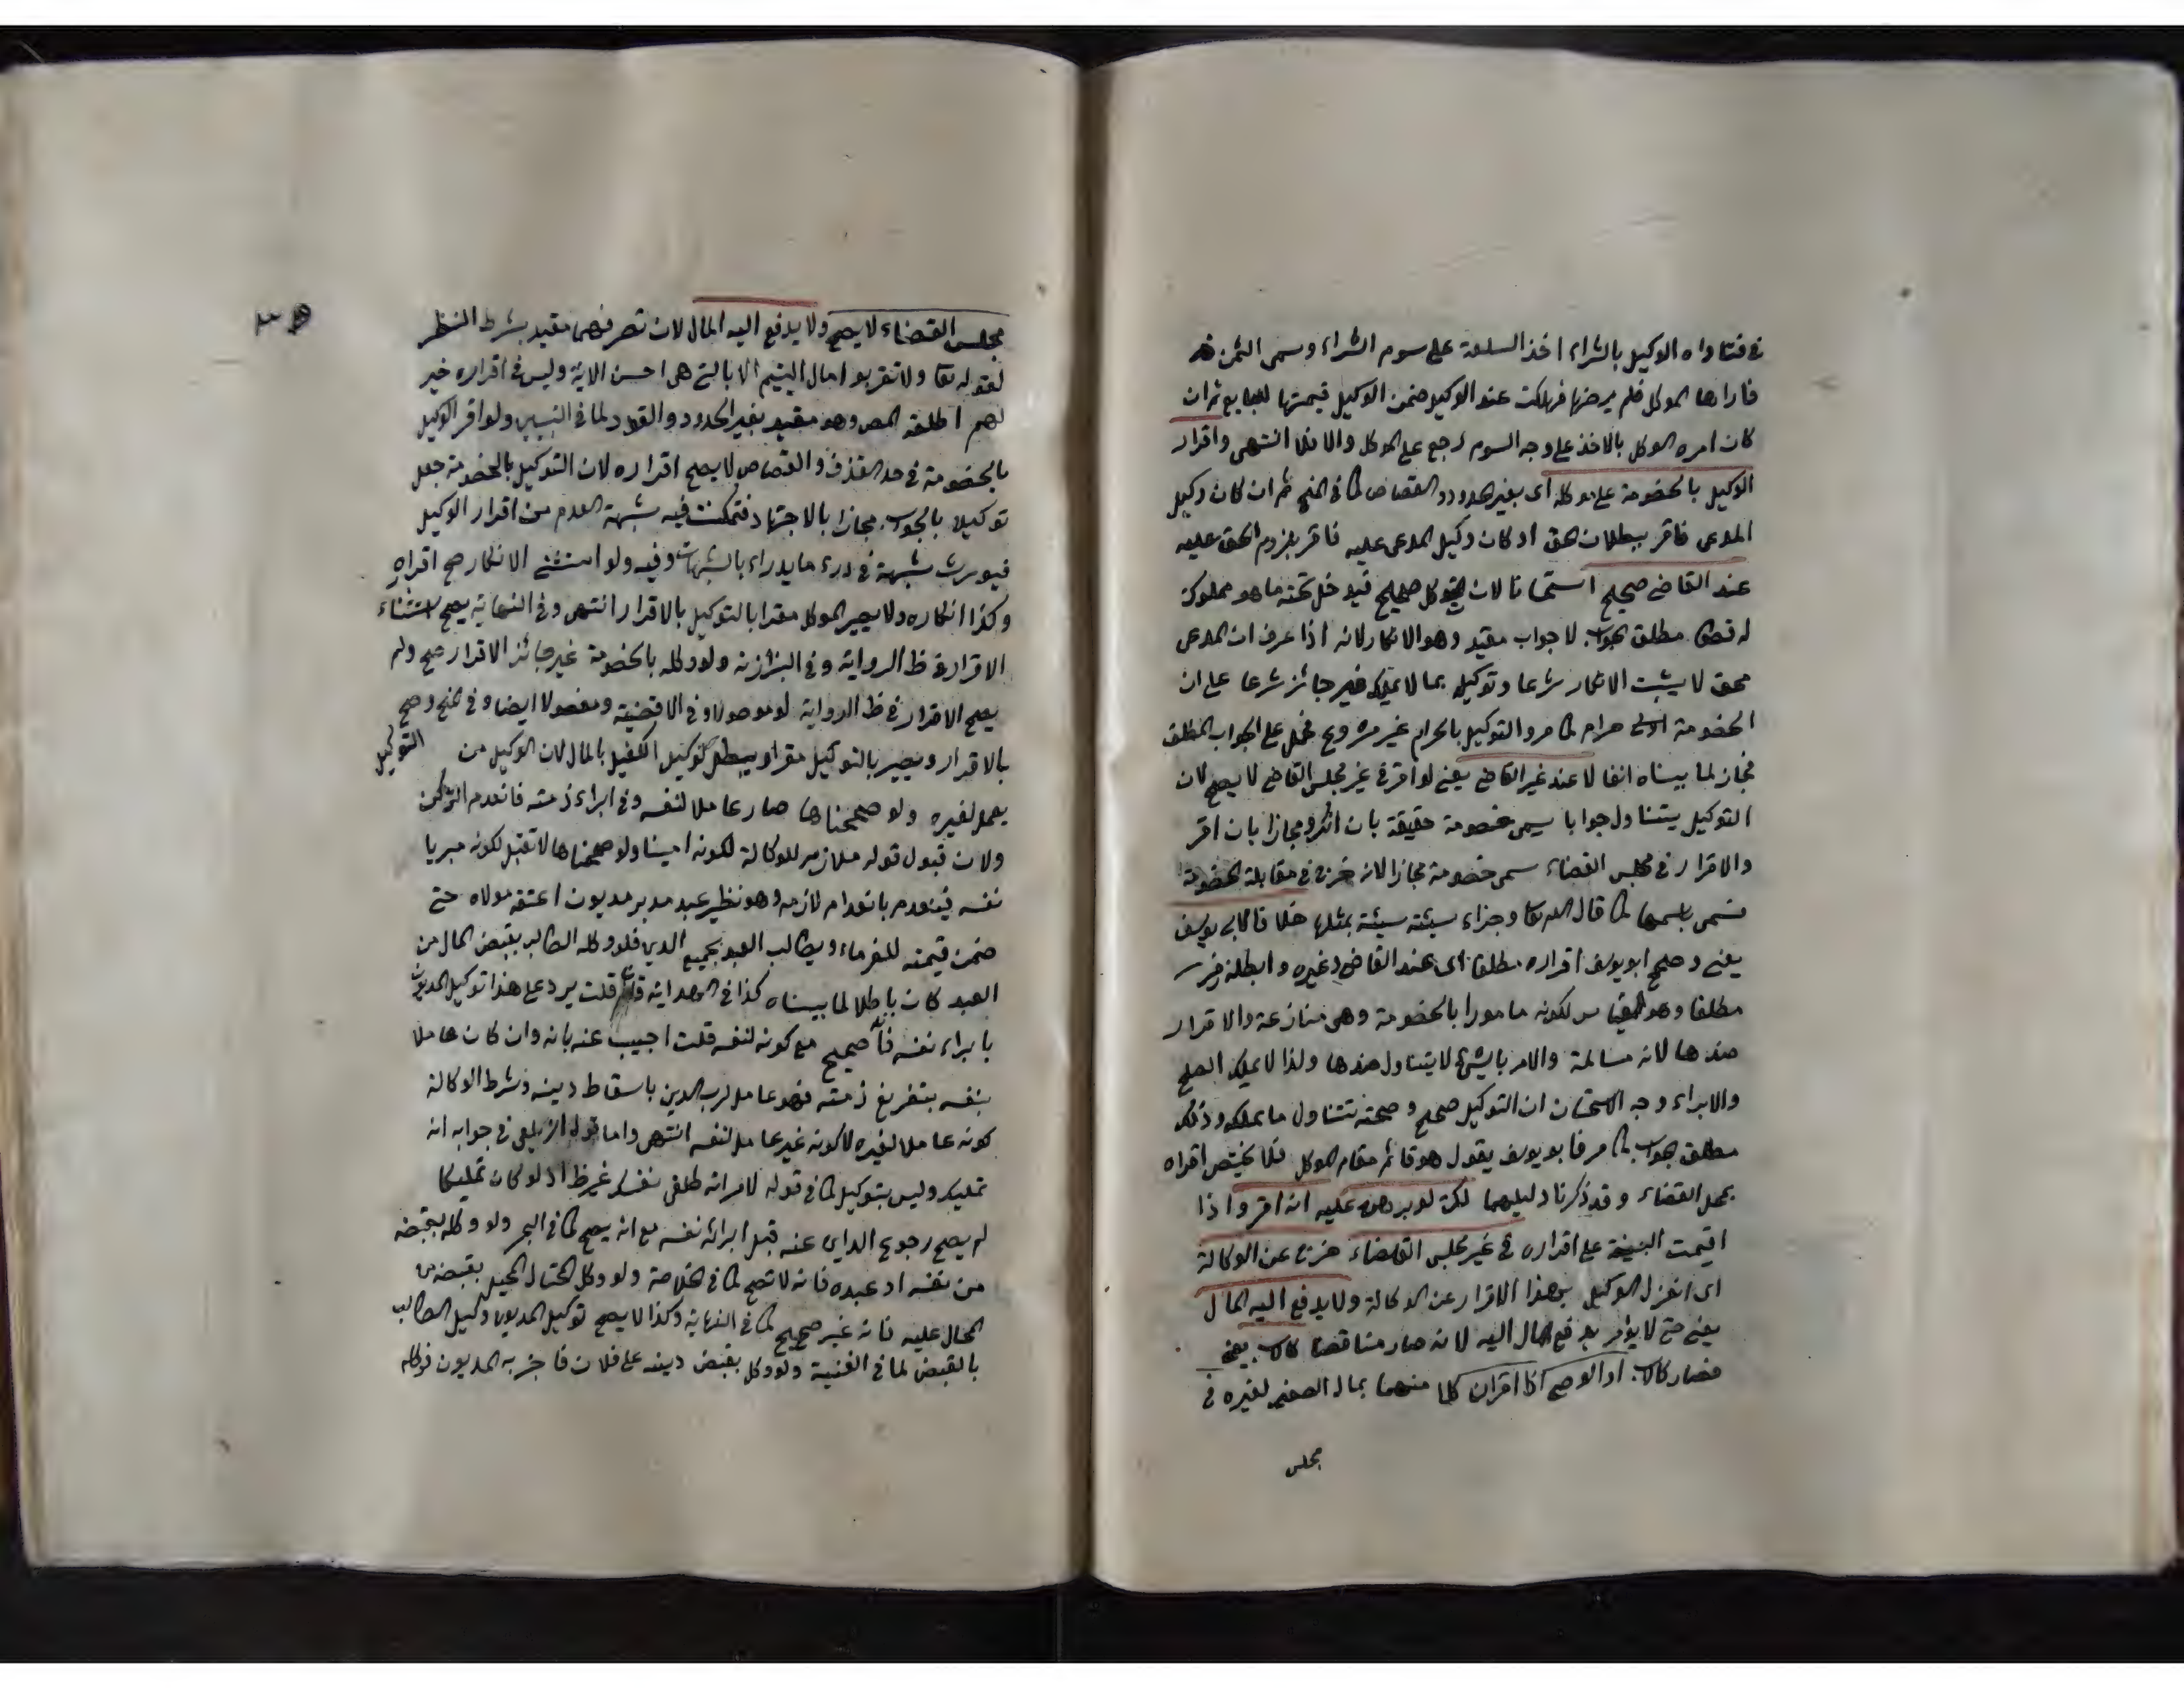 في فتاواه الوكيل بالشراء اخذ السلعة على سوم الشراء وسمى الثمن
فاراها الموكل فلم يرضها فهلكت عند الوكيل ضمن الوكيل قيمتها للبايع ثم ان
كان امره الموكل بالاخذ على وجه السوم رجع على الموكل والا فلا انتهى واقرار
الوكيل بالخصومة على موكله اى بغير الحدود والقصاص كما في المنح ثم ان كان وكيل
المدعى فاقر ببطلان الحق او كان وكيل المدعى عليه فاقر بلزوم الحق عليه
عند القاضى صحيح استحسانا لان التوكيل صحيح فيدخل تحته ما هو مملوك
له قصدا مطلق الجواب لا جواب مقيد وهو الانكار لانه اذا عرف ان المدعى
محق لا يثبت الانكار شرعا وتوكيله بما لا يملك غير جائز شرعا على ان
الخصومة حرام كما مر والتوكيل بالحرام غير مشروع فحمل على الجواب المطلق
مجازا لما بيناه انفا لا عند غير القاضى يعنى لو اقر في غير مجلس القاضى لا يصح لان
التوكيل يتناول جوابا يسمى خصومة حقيقة بان انكر ومجازا بان اقر
والاقرار في مجلس القضاء سمى خصومة مجازا لانه خرج في مقابلة الخصومة
فسمى باسمها كما قال الله تعا وجزاء سيئة سيئة بمثلها خلافا لابى يوسف
يعنى وصحح ابو يوسف اقراره مطلقا اى عند القاضى وغيره وابطله زفر
مطلقا وهو القياس لكونه مامورا بالخصومة وهى منازعة والاقرار
ضدها لانه مسالمة والامر بالشئ لا يتناول ضدها ولذا لا يملك الصلح
والابراء وجه الاستحسان ان التوكيل صحيح وصحته تتناول ما يملكه وذلك
مطلق الجواب كما مر فابو يوسف يقول هو قائم مقام الموكل فلا يختص اقراره
بمحل القضاء وقد ذكرنا دليلهما لكن لو برهن عليه انه اقر واذا
اقيمت البينة على اقراره في غير مجلس القضاء خرج عن الوكالة
اى انعزل الوكيل بهذا الاقرار عن الوكالة ولا يدفع اليه المال
يعنى حتى لا يؤمر بدفع المال اليه لانه صار مناقضا كالاب يعنى
فصار كالاب او الوصى اذا اقر ان كلا منهما بمال الصغير لغيره في
مجلس
مجلس القضاء لا يصح ولا يدفع اليه المال لان تصرفهما مقيد بشرط النظر
لقوله تعا ولا تقربوا مال اليتيم الا بالتى هى احسن الاية وليس في اقراره خير
لهم اطلقه المص وهو مقيد بغير الحدود والقود لما في التبيين ولو اقر الوكيل
بالخصومة في حد القذف والقصاص لا يصح اقراره لان التوكيل بالخصومة جعل
توكيلا بالجواب مجازا بالاجتهاد فتمكنت فيه شبهة العدم من اقرار الوكيل
فيورث شبهة في درء ما يدراء بالشبهات وفيه ولو استثنى الانكار صح اقراره
وكذا انكاره ولا يصير الموكل مقرا بالتوكيل بالاقرار انتهى وفي النهاية يصح استثناء
الاقرار في ظ الرواية وفي البزازية ولو وكله بالخصومة غير جائز الاقرار صح ولم
يصح الاقرار في ظ الرواية لو موصولا وفي الاقضية ومفصولا ايضا وفي المنح وصح
التوكيل
بالاقرار ويصير بالتوكيل مقرا ويبطل توكيل الكفيل بالمال لان الوكيل من
يعمل لغيره ولو صححناها صار عاملا لنفسه في ابراء ذمته فانعدم الركن
ولان قبول قوله ملازم للوكالة لكونه امينا ولو صححناها لا تقبل لكونه مبريا
نفسه فينعدم بانعدام لازمه وهو نظير عبد مدبر مديون اعتقه مولاه حتى
ضمن قيمته للغرماء ويطالب العبد بجميع الدين فلو وكله الطالب بقبض المال من
العبد كان باطلا لما بيناه كذا في الهداية قلت يرد على هذا توكيل المديون
بابراء نفسه فانه صحيح مع كونه لنفسه قلت اجيب عنه بانه وان كان عاملا
بنفسه بتفريغ ذمته فهو عامل لرب الدين باسقاط دينه وشرط الوكالة
كونه عاملا لغيره لا كونه غير عامل لنفسه انتهى واما قول الزيلعى في جوابه انه
تمليك وليس بتوكيل كما في قوله لامراته طلقى نفسك غير ظ اذ لو كان تمليكا
لم يصح رجوع الداين عنه قبل ابرائه نفسه مع انه يصح كما في البحر ولو وكله بقبضه
من نفسه او عبده فانه لا تصح كما في الخلاصة ولو وكل المحتال المحيل بقبضه من
المحال عليه فانه غير صحيح كما في النهاية وكذا لا يصح توكيل المديون وكيل الطالب
بالقبض لما في القنية ولو وكل بقبض دينه على فلان فاخبر به المديون فوكله